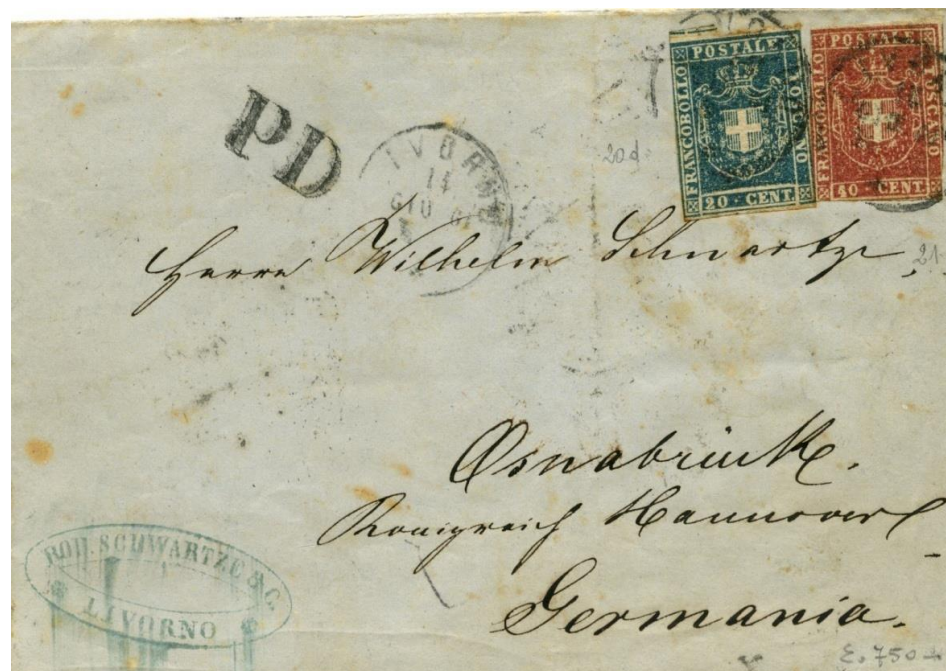 FRANCOBOLLO POSTALE TOSCANO
20 CENT
FRANCOBOLLO POSTALE TOSCANO
40 CENT
PD
LIVORNO
GIU
20d
Herrn Wilhelm Schwartze,
21
Osnabrück.
Königreich Hannover
Germania.
SCHWARTZE & C.
LIVORNO
E. 750